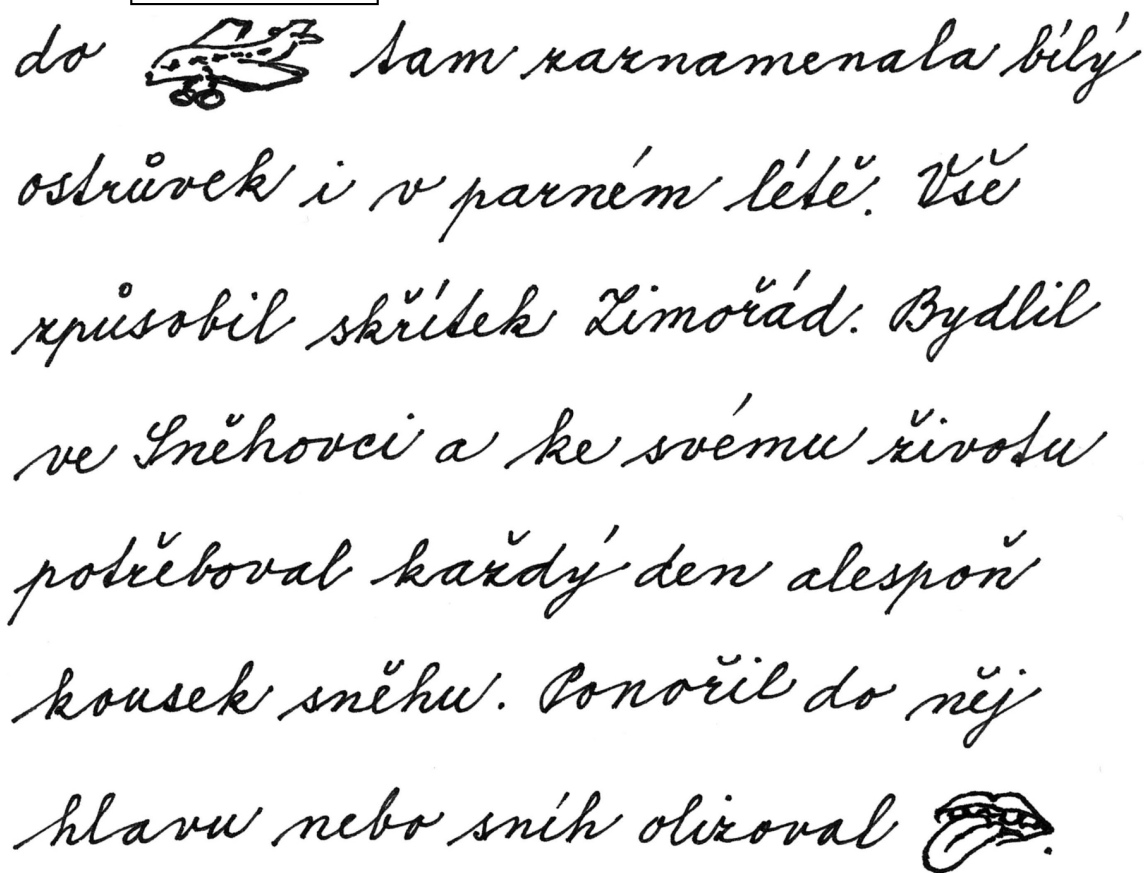 do tam zaznamenala bílý
ostrůvek i v parném létě. Vše
způsobil skřítek Zimořád. Bydlil
ve Sněhovci a ke svému životu
potřeboval každý den alespoň
kousek sněhu. Ponořil do něj
hlavu nebo sníh olizoval .